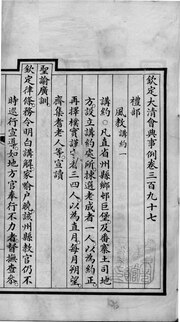 欽定大清會典事例卷三百九十七
禮部
風教講約一
講約○凡直省州縣鄉邨巨堡及番寨土司地
方設立講約處所揀選老成者一人以為約正
再擇樸實謹守者三四人以為直月每月朔望
齊集耆老人等宣讀
聖諭廣訓
欽定律條務令明白講解家喻戶曉該州縣教官仍不
時巡行宣導如地方官奉行不力者督撫查參